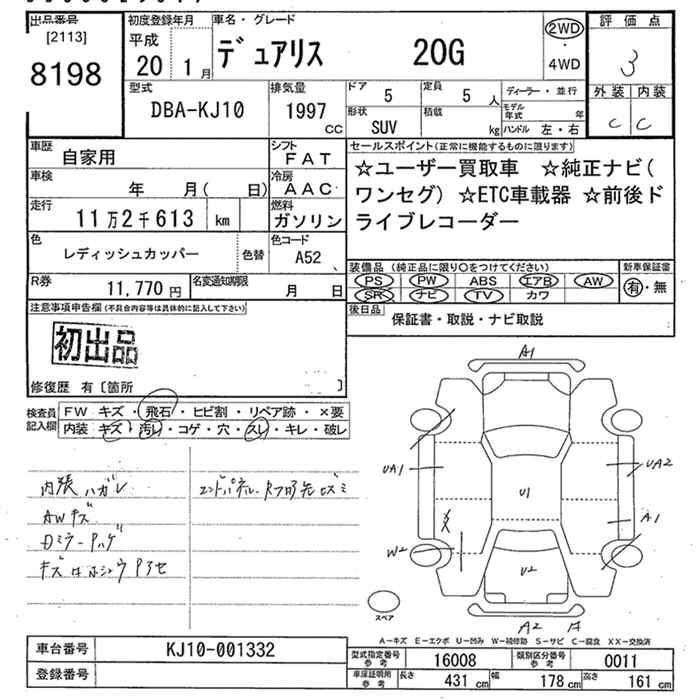 出品番号
[2113]
8198
初度登録年月
平成
20 1月
車名・グレード
デュアリス 20G
2WD
・
4WD
評価点
3
外装 内装
C C
型式
DBA-KJ10
排気量
1997
CC
ドア
5
定員
5 人
ディーラー・並行
形状
SUV
積載
kg
モデル年式 年
ハンドル 左・右
車歴
自家用
シフト
FAT
車検
年 月( 日)
冷房
AAC
走行
11万2千613 km
燃料
ガソリン
色
レディッシュカッパー
色替
色コード
A52
R券
11,770 円
名変通知期限
月 日
セールスポイント(正常に機能するものに限ります)
☆ユーザー買取車 ☆純正ナビ(
ワンセグ) ☆ETC車載器 ☆前後ド
ライブレコーダー
装備品 (純正品に限り○をつけてください)
PS PW ABS エアB AW
SR ナビ TV カワ
新車保証書
有・無
後日品
保証書・取説・ナビ取説
注意事項申告欄(不具合内容等は具体的に記入して下さい)
初出品
修復歴 有〔箇所 〕
検査員
記入欄
FW キズ・飛石・ヒビ割・リペア跡・×要
内装・キズ・汚レ・コゲ・穴・スレ・キレ・破レ
内張ハガレ
AWキズ
Dミラーハゲ
A1
UA1
U1
UA2
A1
W2
U2
A2
A
スペア
A-キズ E-エクボ U-凹み W-補修跡 S-サビ C-腐食 XX-交換済
車台番号
KJ10-001332
登録番号
型式指定番号
参考
16008
類別区分番号
参考
0011
車庫証明用
参考
長さ
431 cm
幅
178 cm
高さ
161 cm